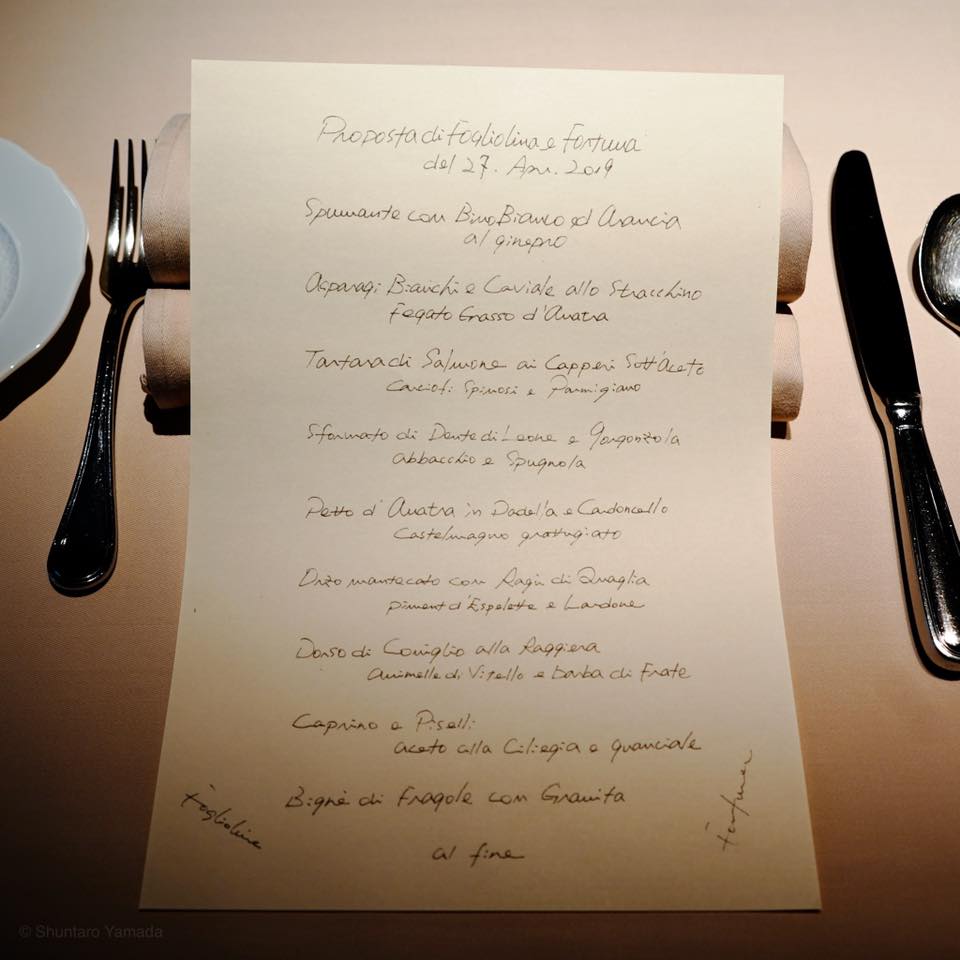 Proposta di Fogliolina e Fortuna
del 27. Apr. 2019
Spumante con Bino Bianco ed Arancia
al ginepro
Asparagi Bianchi e Caviale allo Stracchino
Fegato Grasso d'Anatra
Tartara di Salmone ai Capperi Sott'Aceto
Carciofi Spinosi e Parmigiano
Sformato di Dente di Leone e Gorgonzola
abbacchio e Spugnola
Petto d'Anatra in Padella e Cardoncello
Castelmagno grattugiato
Orzo mantecato con Ragù di Quaglia
piment d'Espelette e Lardone
Dorso di Coniglio alla Raggiera
animelle di Vitello e barba di Frate
Caprino e Piselli
aceto alla Ciliegia e guanciale
Bignè di Fragole con Granita
al fine
Fogliolina
© Shuntaro Yamada